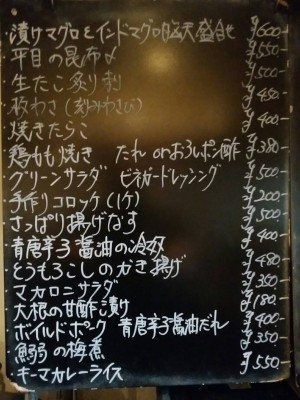 ・漬けマグロとインドマグロ脳天盛合せ ¥600-
・平目の昆布〆 ¥550-
・生たこ炙り刺 ¥500-
・板わさ(刻みわさび) ¥450-
・焼きたらこ ¥400-
・鶏もも焼き たれ orおろしポン酢 ¥380-
・グリーンサラダ ビネガードレッシング ¥500-
・手作りコロッケ(1ケ) ¥200-
・さっぱり揚げなす ¥500-
・青唐辛子醤油の冷奴 ¥400-
・とうもろこしのかき揚げ ¥480-
・マカロニサラダ ¥350-
・大根の甘酢漬け ¥180-
・ボイルドポーク 青唐辛子醤油だれ ¥400-
・鰯の梅煮 ¥350-
・キーマカレーライス ¥550-